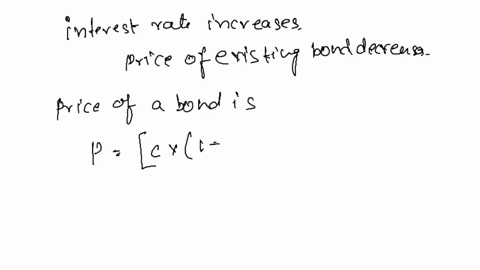 interest rate increases.
price of existing bond decreases.
price of a bond is
P = [c x (1-